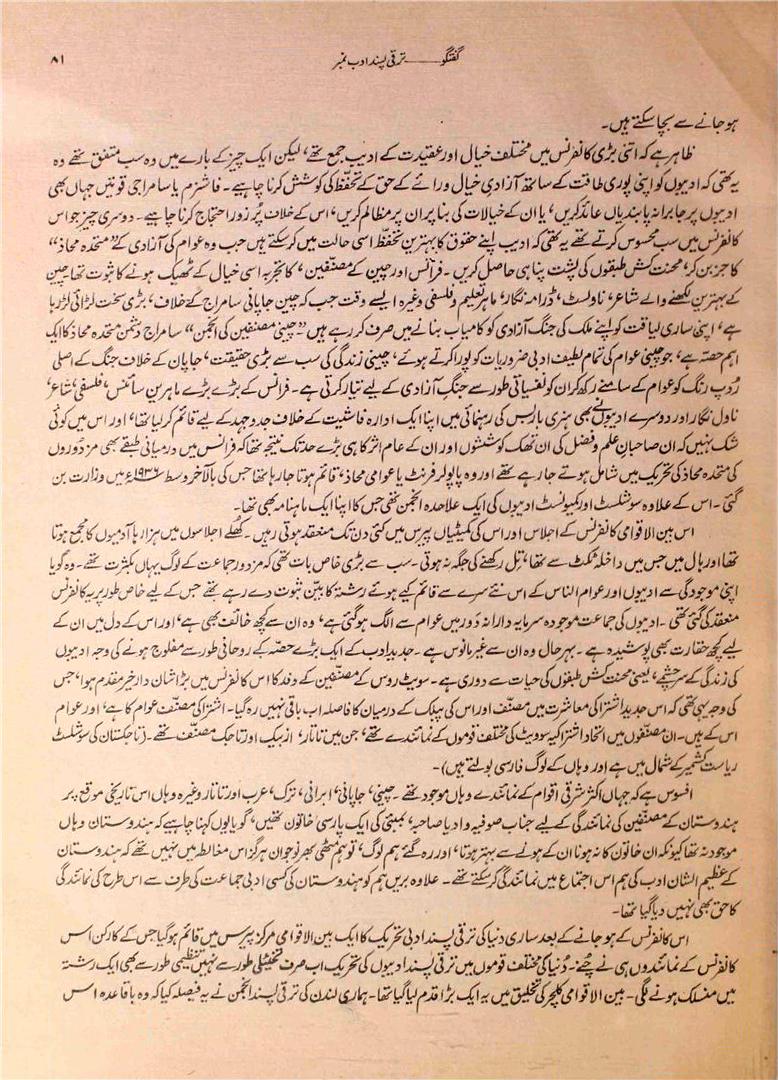 گفتگو ــــ ترقی پسند ادب نمبر
۸۱
ہو جانے سے بچا سکتے ہیں۔
ظاہر ہے کہ اتنی بڑی کانفرنس میں مختلف خیال اور عقیدت کے ادیب جمع تھے، لیکن ایک چیز کے بارے میں وہ سب متفق تھے وہ
یہ تھی کہ ادیبوں کو اپنی پوری طاقت کے ساتھ آزادیِ خیال و رائے کے حق کے تحفّظ کی کوشش کرنا چاہیے۔ فاشزم یا سامراجی قوتیں جہاں بھی
ادیبوں پر جابرانہ پابندیاں عائد کریں، یا ان کے خیالات کی بنا پر ان پر مظالم کریں، اس کے خلاف پُر زور احتجاج کرنا چاہیے۔ دوسری چیز جو اس
کانفرنس میں سب محسوس کرتے تھے یہ تھی کہ ادیب اپنے حقوق کا بہترین تحفّظ اسی حالت میں کر سکتے ہیں جب وہ عوام کی آزادی کے ”متحدہ محاذ“
کا جز بن کر، محنت کش طبقوں کی پشت پناہی حاصل کریں۔ فرانس اور چین کے مصنّفین، کا تجربہ اسی خیال کے ٹھیک ہونے کا ثبوت تھا چین
کے بہترین لکھنے والے شاعر، ناولسٹ، ڈرامہ نگار، ماہرِ تعلیم و فلسفی وغیرہ ایسے وقت جب کہ چین جاپانی سامراج کے خلاف، بڑی سخت لڑائی لڑ رہا
ہے، اپنی ساری لیاقت کو اپنے ملک کی جنگ آزادی کو کامیاب بنانے میں صرف کر رہے ہیں ”چینی مصنفین کی انجمن“ سامراج دشمن متحدہ محاذ کا ایک
اہم حصّہ ہے، جو چینی عوام کی تمام لطیف ادبی ضروریات کو پورا کرتے ہوئے، چینی زندگی کی سب سے بڑی حقیقت، جاپان کے خلاف جنگ کے اصلی
رُوپ رنگ کو عوام کے سامنے رکھ کر ان کو نفسیاتی طور سے جنگِ آزادی کے لیے تیار کرتی ہے۔ فرانس کے بڑے بڑے ماہرینِ سائنس، فلسفی، شاعر،
ناول نگار اور دوسرے ادیبوں نے بھی ہنری باربس کی رہنمائی میں اپنا ایک ادارہ فاشیت کے خلاف جدوجہد کے لیے قائم کر لیا تھا، اور اس میں کوئی
شک نہیں کہ ان صاحبانِ علم و فضل کی ان تھک کوششوں اور ان کے عام اثر کا ہی بڑے حد تک نتیجہ تھا کہ فرانس میں درمیانی طبقے بھی مزدوروں
کی متحدہ محاذ کی تحریک میں شامل ہوتے جا رہے تھے اور وہ پاپولر فرنٹ یا عوامی محاذ، قائم ہوتا جا رہا تھا جس کی بالآخر وسط ۱۹۳۶ء میں وزارت بن
گئی۔ اس کے علاوہ سوشلسٹ اور کمیونسٹ ادیبوں کی ایک علاحدہ انجمن تھی جس کا اپنا ایک ماہنامہ بھی تھا۔
اس بین الاقوامی کانفرنس کے اجلاس اور اس کی کمیٹیاں پیرس میں کئی دن تک منعقد ہوتی رہیں۔ کھلے اجلاسوں میں ہزارہا آدمیوں کا مجمع ہوتا
تھا اور ہال میں جس میں داخلہ ٹکٹ سے تھا، تِل رکھنے کی جگہ نہ ہوتی۔ سب سے بڑی خاص بات تھی کہ مزدور جماعت کے لوگ یہاں بکثرت تھے۔ وہ گویا
اپنی موجودگی سے ادیبوں اور عوام الناس کے اس نئے سرے سے قائم کیے ہوئے رشتہ کا بیّن ثبوت دے رہے تھے جس کے لیے خاص طور پر یہ کانفرنس
منعقد کی گئی تھی۔ ادیبوں کی جماعت موجودہ سرمایہ دارانہ دَور میں عوام سے الگ ہو گئی ہے، وہ ان سے کچھ خائف بھی ہے، اور اس کے دل میں ان کے
لیے کچھ حقارت بھی پوشیدہ ہے۔ بہر حال وہ ان سے غیر مانوس ہے۔ جدید ادب کے ایک بڑے حصّہ کے روحانی طور سے مفلوج ہونے کی وجہ ادیبوں
کی زندگی کے سرچشمے، یعنی محنت کش طبقوں کی حیات سے دوری ہے۔ سویٹ روس کے مصنّفین کے وفد کا اس کانفرنس میں بڑا شان دار خیر مقدم ہوا، جس
کی وجہ یہی تھی کہ اس جدید اشتراکی معاشرت میں مصنّف اور اس کی پبلک کے درمیان کا فاصلہ اب باقی نہیں رہ گیا۔ اشتراکی مصنّف عوام کا ہے، اور عوام
اس کے ہیں۔ ان مصنّفوں میں اتحاد اشتراکیہ سوویٹ کی مختلف قوموں کے نمائندے تھے، جن میں تاتار، ازبیک اور تاجک مصنّف تھے۔ (تاجکستان کی سوشلسٹ
ریاست کشمیر کے شمال میں ہے اور وہاں کے لوگ فارسی بولتے ہیں)۔
افسوس ہے کہ جہاں اکثر مشرقی اقوام کے نمائندے وہاں موجود تھے۔ چینی، جاپانی، ایرانی، ترک، عرب اور تاتار وغیرہ وہاں اس تاریخی موقع پر
ہندوستان کے مصنّفین کی نمائندگی کے لیے جناب صوفیہ وادیا صاحبہ، بمبئی کی ایک پارسی خاتون تھیں، گو یوں کہنا چاہیے کہ ہندوستان وہاں
موجود نہ تھا کیونکہ ان خاتون کا نہ ہونا ان کے ہونے سے بہتر ہوتا، اور رہ گئے ہم لوگ، تو ہم مٹھی بھر نوجوان ہرگز اس مغالطہ میں نہیں تھے کہ ہندوستان
کے عظیم الشان ادب کی ہم اس اجتماع میں نمائندگی کر سکتے تھے۔ علاوہ بریں ہم کو ہندوستان کی کسی ادبی جماعت کی طرف سے اس طرح کی نمائندگی
کا حق بھی نہیں دیا گیا تھا۔
اس کانفرنس کے ہو جانے کے بعد ساری دنیا کی ترقی پسند ادبی تحریک کا ایک بین الاقوامی مرکز پیرس میں قائم ہو گیا جس کے کارکن اس
کانفرنس کے نمائندوں ہی نے چُنے۔ دُنیا کی مختلف قوموں میں ترقی پسند ادیبوں کی تحریک اب صرف تخیّلی طور سے نہیں تنظیمی طور سے بھی ایک رشتہ
میں منسلک ہونے لگی۔ بین الاقوامی کلچر کی تخلیق میں یہ ایک بڑا قدم لیا گیا تھا۔ ہماری لندن کی ترقی پسند انجمن نے یہ فیصلہ کیا کہ وہ باقاعدہ اس